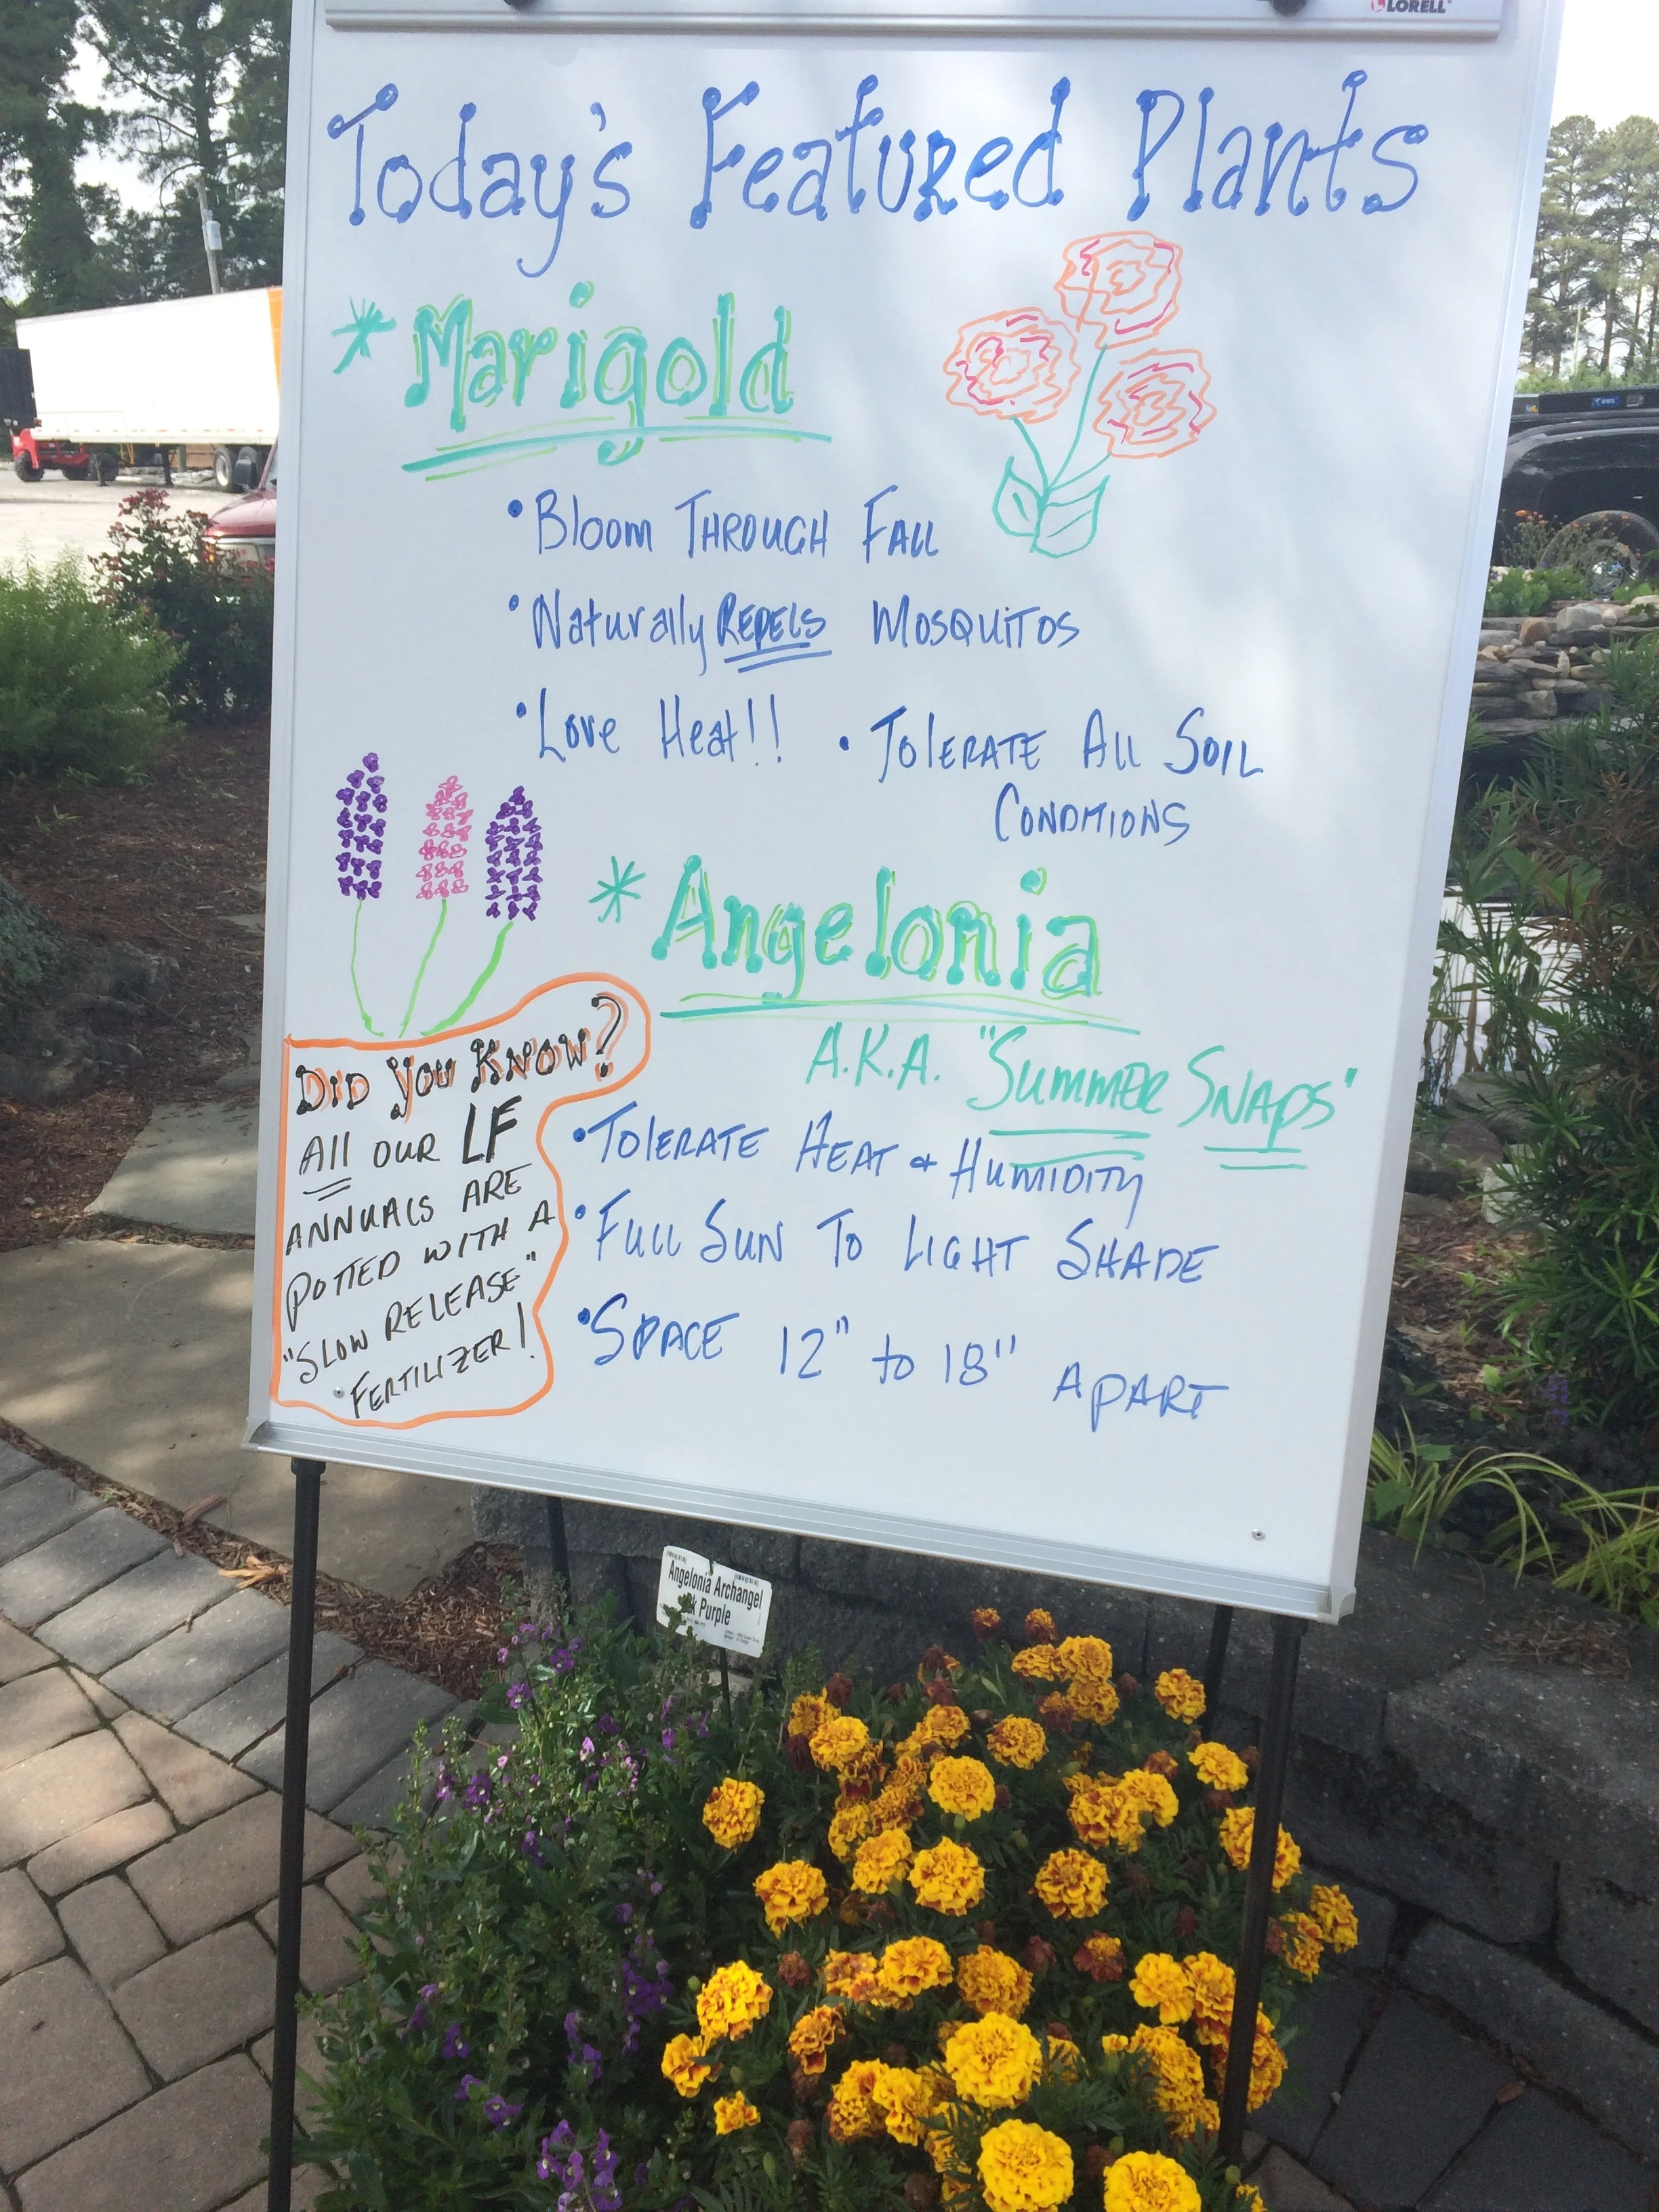 LORELL
Today's Featured Plants
*Marigold
• Bloom THROUGH FALL
• Naturally REPELS MOSQUITOS
• Love Heat!! • TOLERATE All SOIL
CONDITIONS
*Angelonia
A.K.A. "SUMMER SNAPS"
• TOLERATE HEAT & HUMIDITY
• FULL SUN TO LIGHT SHADE
• SPACE 12" to 18" APART
DID YOU KNOW?
All OUR LF
ANNUALS ARE
POTTED WITH A
"SLOW RELEASE"
FERTILIZER!
Angelonia Archangel
Purple